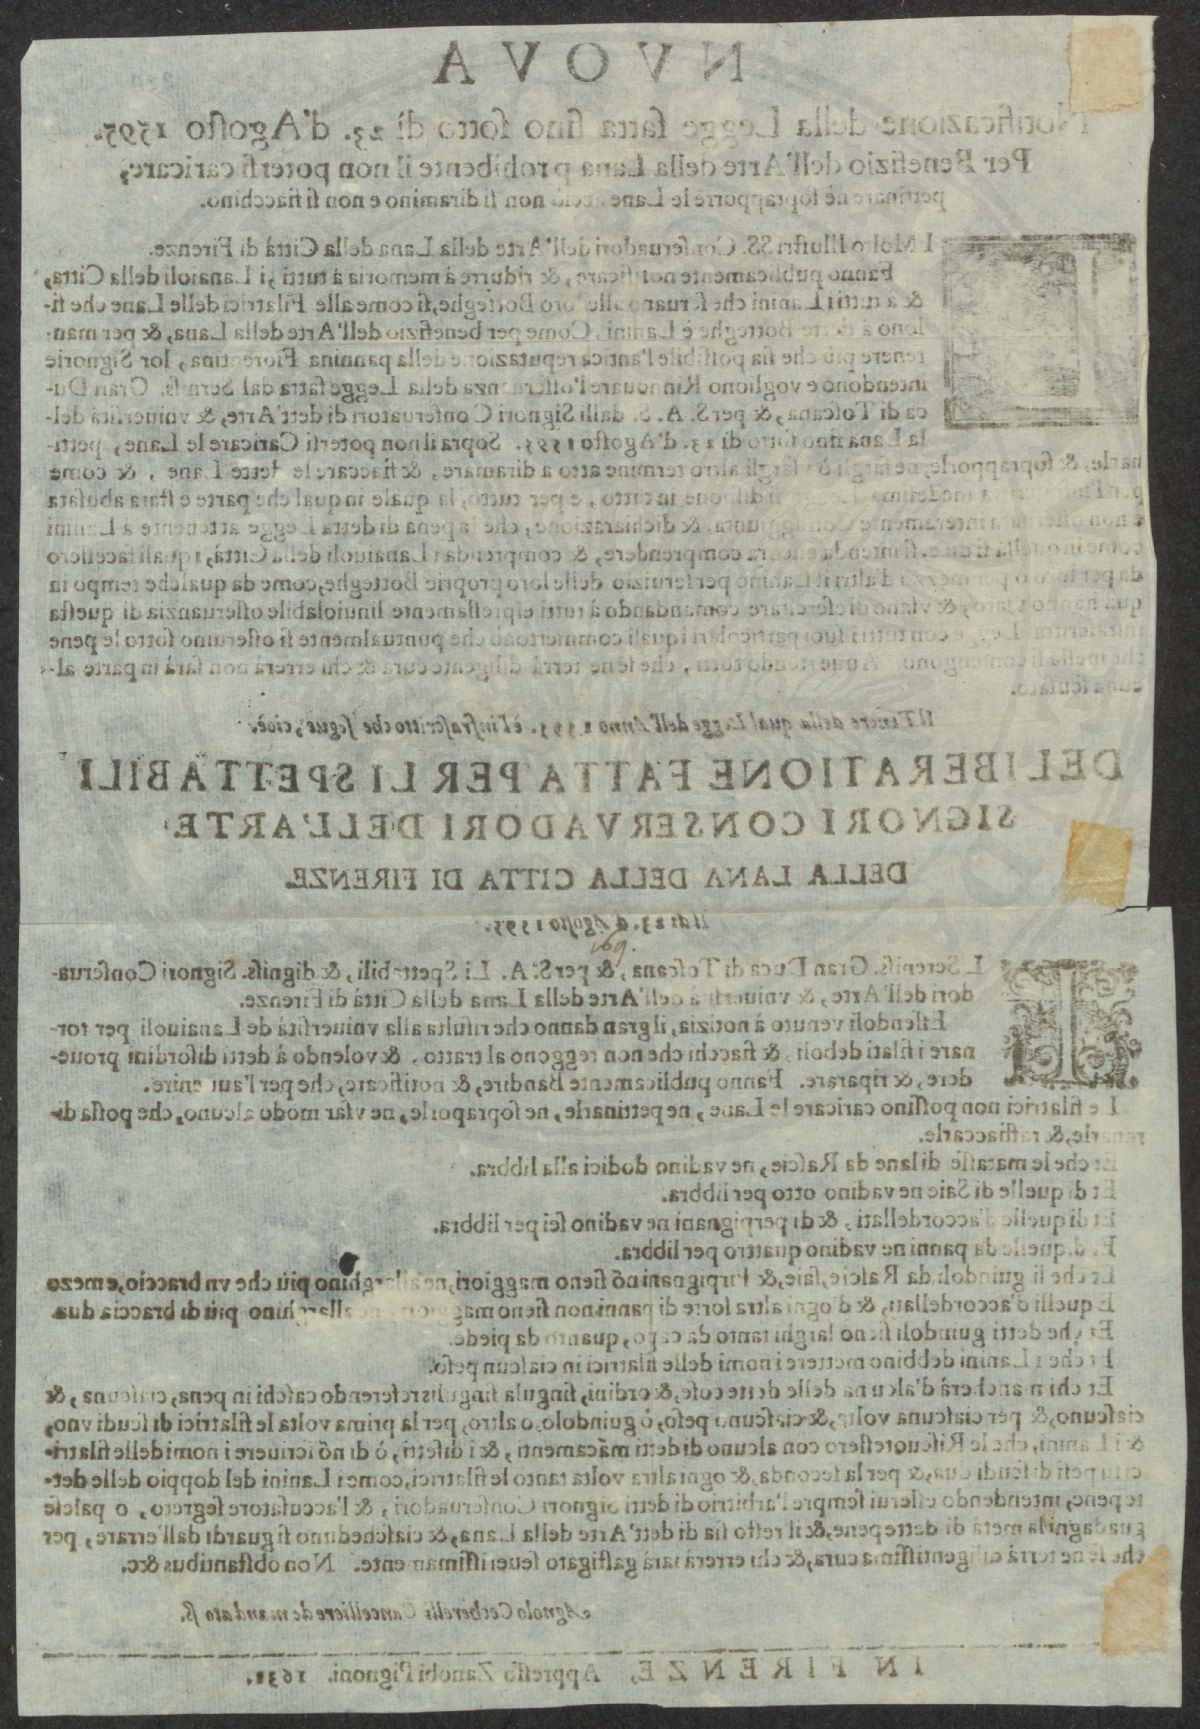 NVOVA
Notificazione della Legge fatta sino sotto dì 23. d'Agosto 1595.
Per Benefizio dell'Arte della Lana prohibente il non potersi caricare,
pettinare nè soprapporre le Lane acciò non si diramino e non si fiacchino.
I Molto Illustri SS. Conseruadori dell'Arte della Lana della Città di Firenze.
Fanno publicamente notificare, & ridurre à memoria à tutti, i Lanaioli della Citta,
& a tutti Lanini che seruano alle loro Botteghe, si come alle Filatrici delle Lane che fi-
lono à dette Botteghe è Lanini, Come per benefizio dell'Arte della Lana, & per man-
tenere più che sia possibile l'antica reputazione della pannina Fiorentina, lor Signorie
intendono e vogliono Rinnouare l'osseruanza della Legge fatta dal Sereniss. Gran Du-
ca di Toscana, & per S. A. S. dalli Signori Conseruatori di dett'Arte, & vniuersità del-
la Lana sino sotto dì 23. d'Agosto 1595. Sopra il non potersi Caricare le Lane, petti-
narle, & soprapporle, ne fargli ò vsargli altro termine atto a diramare, & fiaccare le dette Lane, & come
per l'infrascritta medesima Legge si dispone in tutto, e per tutto, la quale in qualche parte e stata abusata
e non osseruata interamente Con aggiunta, & dichiarazione, che la pena di detta Legge attenente a Lanini
come in quella si dice, s'intenda ancora comprendere, & comprenda i Lanaiuoli della Città, i quali facessero
da per loro ò per mezzo d'altri il Lanino per seruizio delle loro proprie Botteghe, come da qualche tempo in
qua hanno vsato, & vsano di esercitare comandando à tutti espressamente l'inuiolabile osseruanzia di questa
infrascritta Legge con tutti i suoi particolari i quali commettono che puntualmente si osseruino sotto le pene
che in essa si contengono. Auuertendo tutti, che se ne terrà diligente cura & chi errerà non sarà in parte al-
cuna scusato.
Il Tenore della qual Legge dell'Anno 1595. è l'infrascritto che segue, cioè.
DELIBERATIONE FATTA PER LI SPETTABILI
SIGNORI CONSERVADORI DELL'ARTE
DELLA LANA DELLA CITTA DI FIRENZE.
Il dì 23. d'Agosto 1595.
169.
IL Sereniss. Gran Duca di Toscana, & per S. A. Li Spettabili, & digniss. Signori Conserua-
dori dell'Arte, & vniuersità dell'Arte della Lana della Città di Firenze.
Essendosi venuto à notizia, il gran danno che risulta alla vniuersità de Lanaiuoli per tor-
nare i filati deboli, & fiacchi che non reggono al tratto, & volendo à detti disordini proue-
dere, & riparare. Fanno publicamente Bandire, & notificare, che per l'auuenire.
Le filatrici non possino caricare le Lane, ne pettinarle, ne sopraporle, ne vsar modo alcuno, che possa di-
ramarle, & raffiaccarle.
Et che le matasse di lane da Rascie, ne vadino dodici alla libbra.
Et di quelle di Saie ne vadino otto per libbra.
Et di quelle d'accordellati, & di perpignani ne vadino sei per libbra.
Et di quelle da pannine vadino quattro per libbra.
Et che li guindoli, da Rascie, saie, & Pirpignani nõ sieno maggiori, ne allarghino più che vn braccio, e mezo
E quelli d'accordellati, & d'ogni altra sorte di pannine non sieno maggiori, ne allarghino più di braccia dua
Et che detti guindoli sieno larghi tanto da capo, quanto da piede.
Et che i Lanini debbino mettere i nomi delle filatrici in ciascun peso.
Et chi mancherà d'alcuna delle dette cose, & ordini, singula singulis referendo caschi in pena, ciascuna, &
ciascuno, & per ciascuna volta, & ciascuno peso, ò guindolo, o altro, per la prima volta le filatrici di scudi vno,
& i Lanini, che le Riscuotessero con alcuno di detti mãcamenti, & i difetti, ò di nõ scriuere i nomi delle filatri-
ci su pesi di scudi dua, & per la seconda, & ogni altra volta tanto le filatrici, come i Lanini del doppio delle det-
te pene, intendendo esserui sempre l'arbitrio di detti Signori Conseruadori, & l'accusatore segreto, o palese
guadagni la metà di dette pene, & il resto sia di dett'Arte della Lana, & ciascheduno si guardi dall'errare, per
che se ne terrà diligentissima cura, & chi errerà sarà gastigato seuerissimamente. Non obstantibus &c.
Agnolo Cerberelli Cancelliere de mandato ss.
IN FIRENZE, Appresso Zanobi Pignoni. 1631.